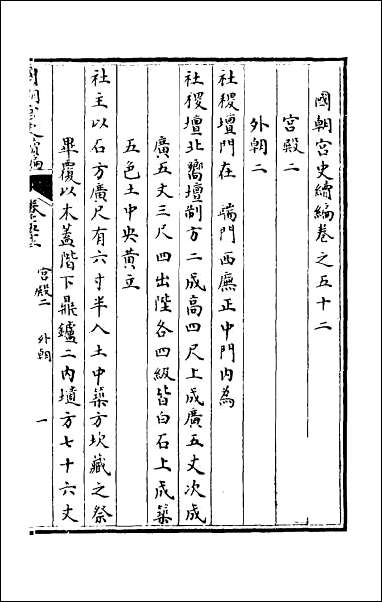 國朝宮史續編卷之五十二
宮殿二
外朝二
社稷壇門在 端門西廡正中門內為
社稷壇北嚮壇制方二成高四尺上成廣五丈次成
廣五丈三尺四出陛各四級皆白石上成築
五色土中央黃立
社主以石方廣尺有六寸半入土中築方坎藏之祭
畢覆以木蓋階下鼎鑪二內壝方七十六丈
宮殿二 外朝
一